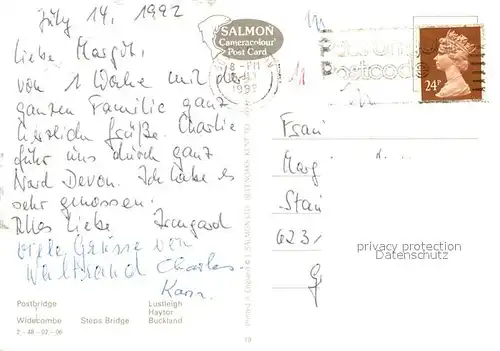 July 14, 1992
Liebe Margith,
von 1 Woche mit der
ganzen Familie ganz
herzlich Grüße. Charlie
fuhr uns durch ganz
Nord Devon. Ich habe es
sehr genossen.
Alles Liebe Irmgard
viele Grüsse von
Waltraud Charles.
Karin.
Postbridge Lustleigh
Haytor
Widecombe Steps Bridge Buckland
2-48-07-06
SALMON
Cameracolour
Post Card
8-PM
1992
postcode
24P
Frau
Marg
Stau
623
G
privacy protection
Datenschutz
19